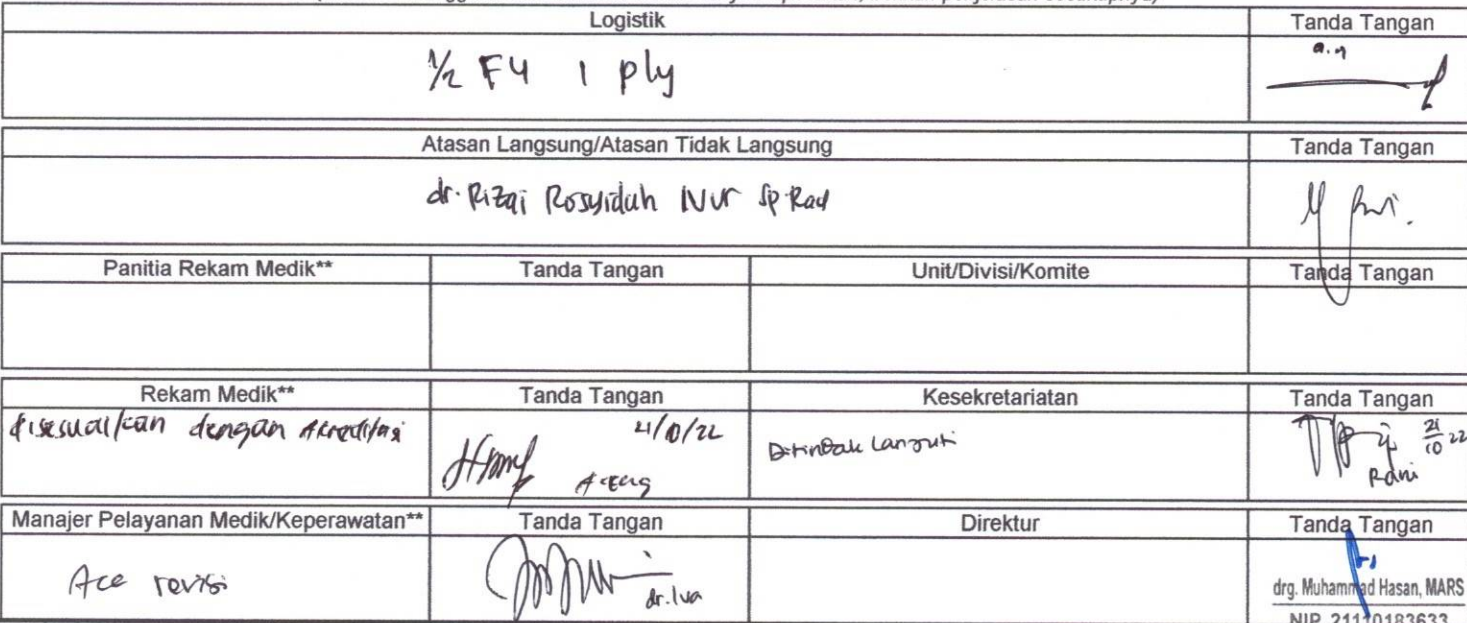 Logistik Tanda Tangan
1/2 F4 1 ply a.n
Atasan Langsung/Atasan Tidak Langsung Tanda Tangan
dr. Rizqi Rosyidah Nur Sp Rad
Panitia Rekam Medik** Tanda Tangan Unit/Divisi/Komite Tanda Tangan
Rekam Medik** Tanda Tangan Kesekretariatan Tanda Tangan
disesuaikan dengan Akreditasi 21/10/22 Ditindak Lanjuti 21/10 22
Rani
Manajer Pelayanan Medik/Keperawatan** Tanda Tangan Direktur Tanda Tangan
Acc revisi dr. Iva
drg. Muhammad Hasan, MARS
NIP. 21110183633